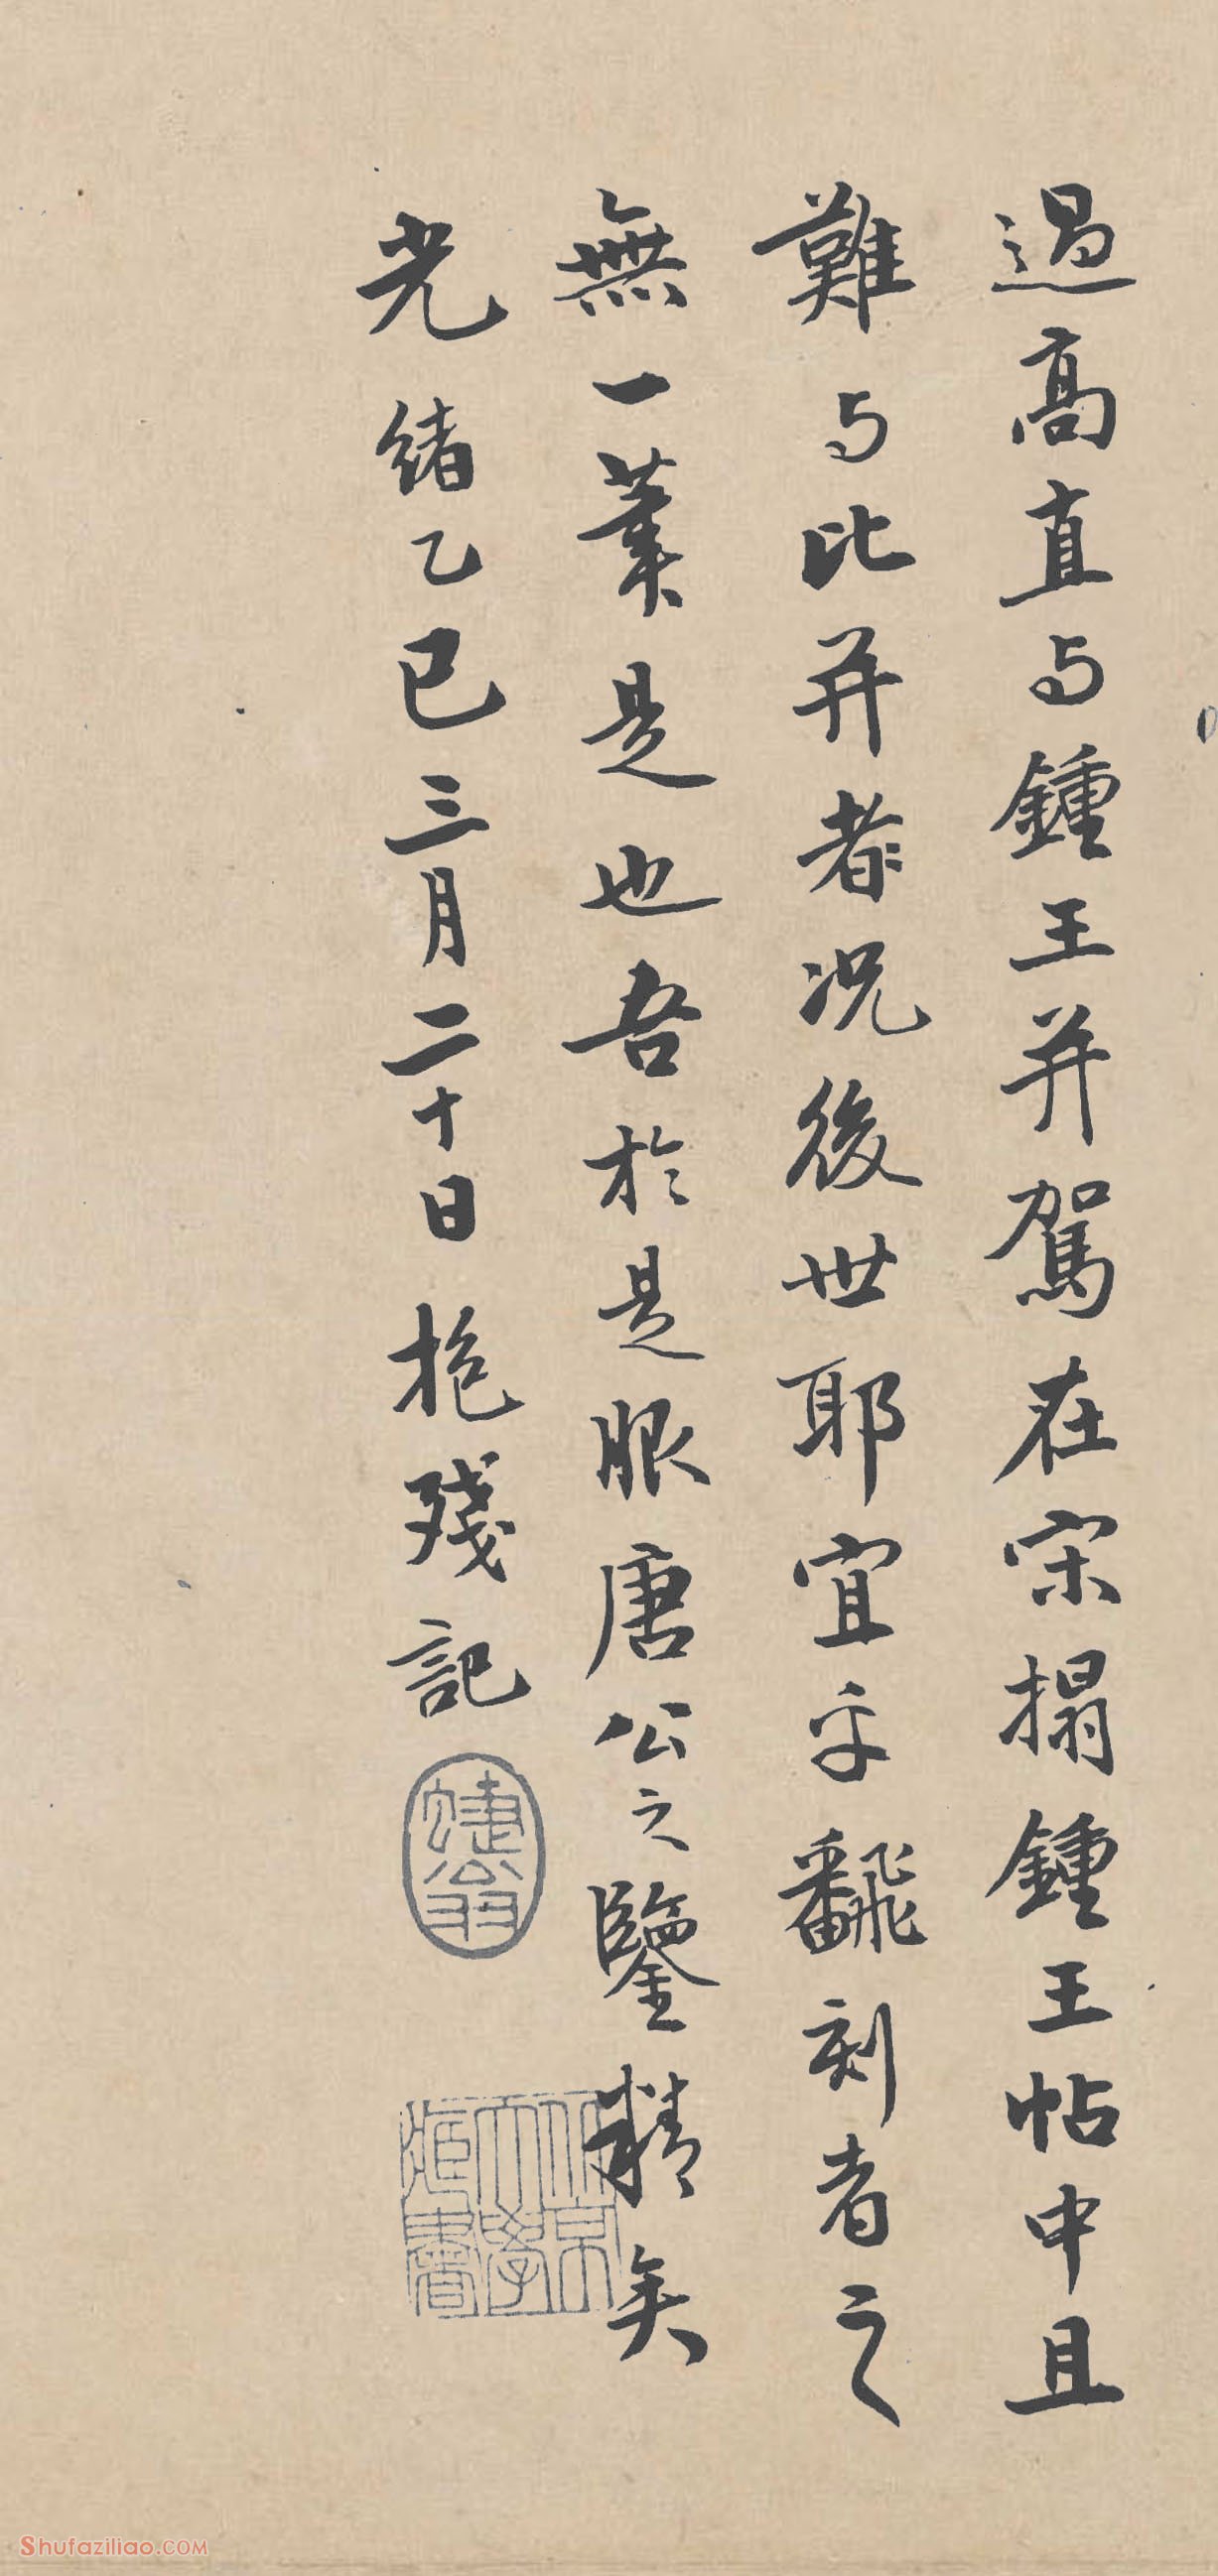 過高直与鍾王并駕在宋搨鍾王帖中且
難与比并者况後世耶宜乎飜刻者之
無一業是也吾於是服唐公之鑒精矣
光緒乙巳三月二十日抱殘記
北京大學藏書
Shufaziliao.COM